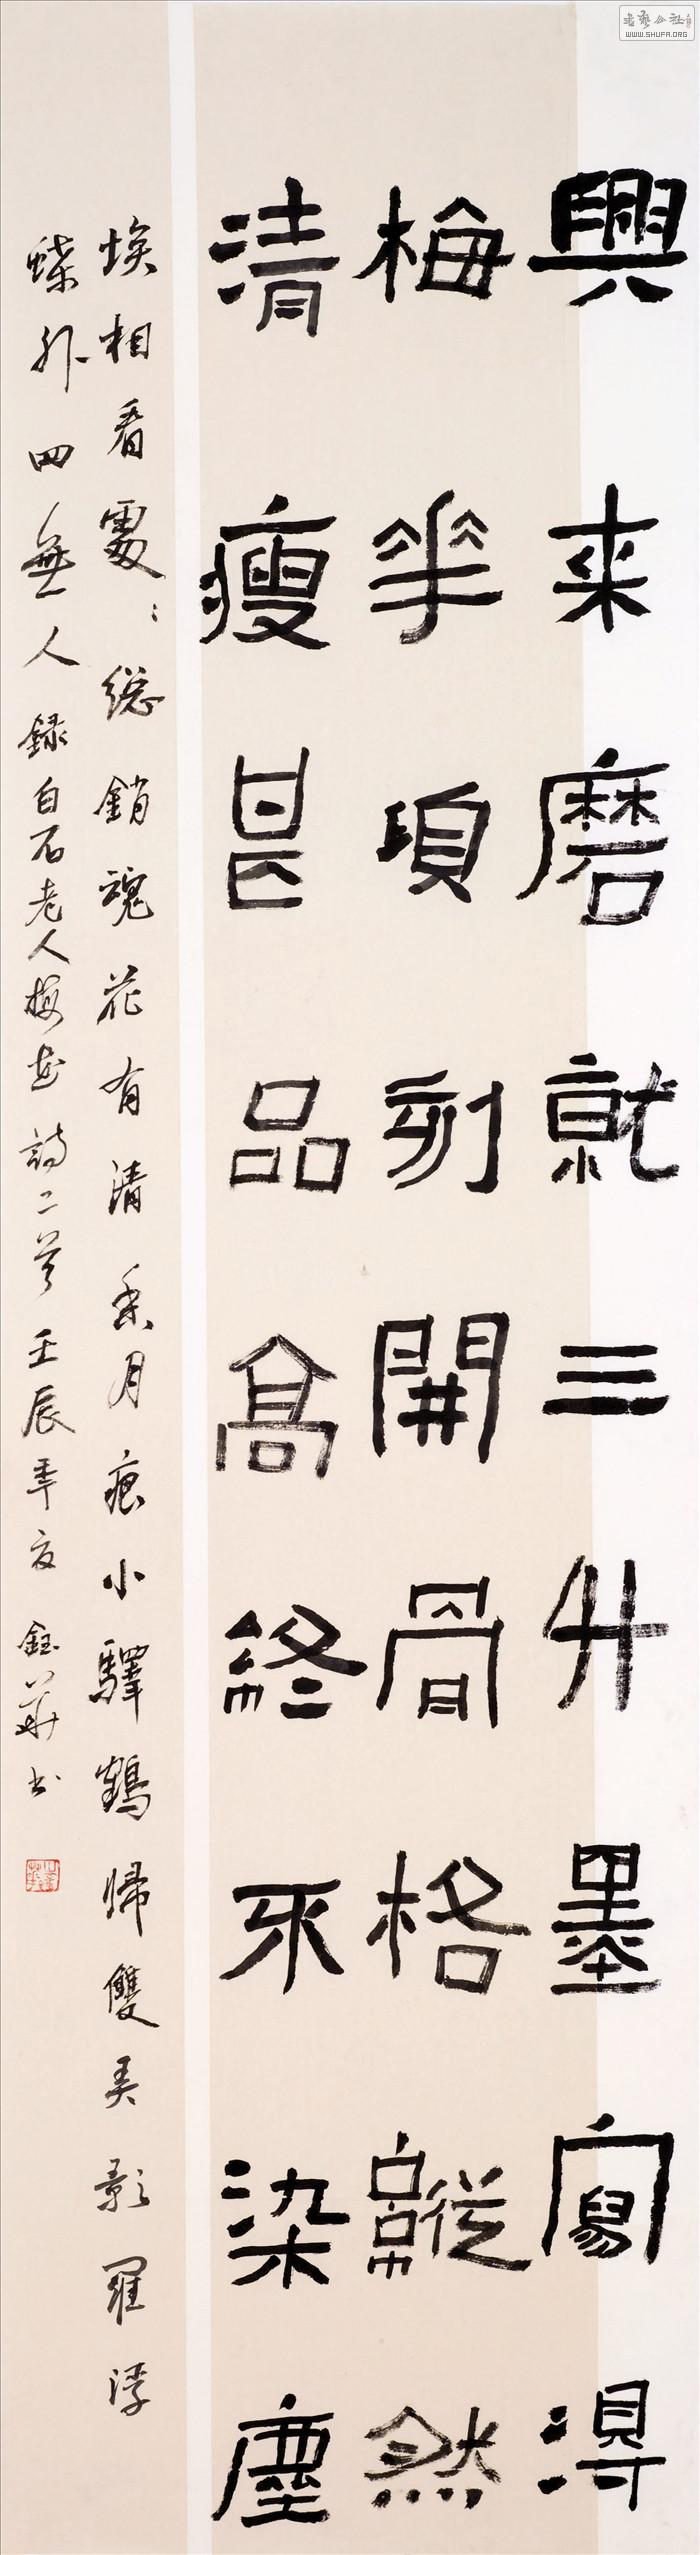 興来磨就三升墨寫得
梅花頃刻開骨格縱然
清瘦甚品高終不染塵
埃相看處〻總銷魂花有清香月有痕小驛鶴歸雙美影羅浮
蝶外四無人錄白石老人梅花詩二首壬辰年夏鈺華書
書藝公社
WWW.SHUFA.ORG